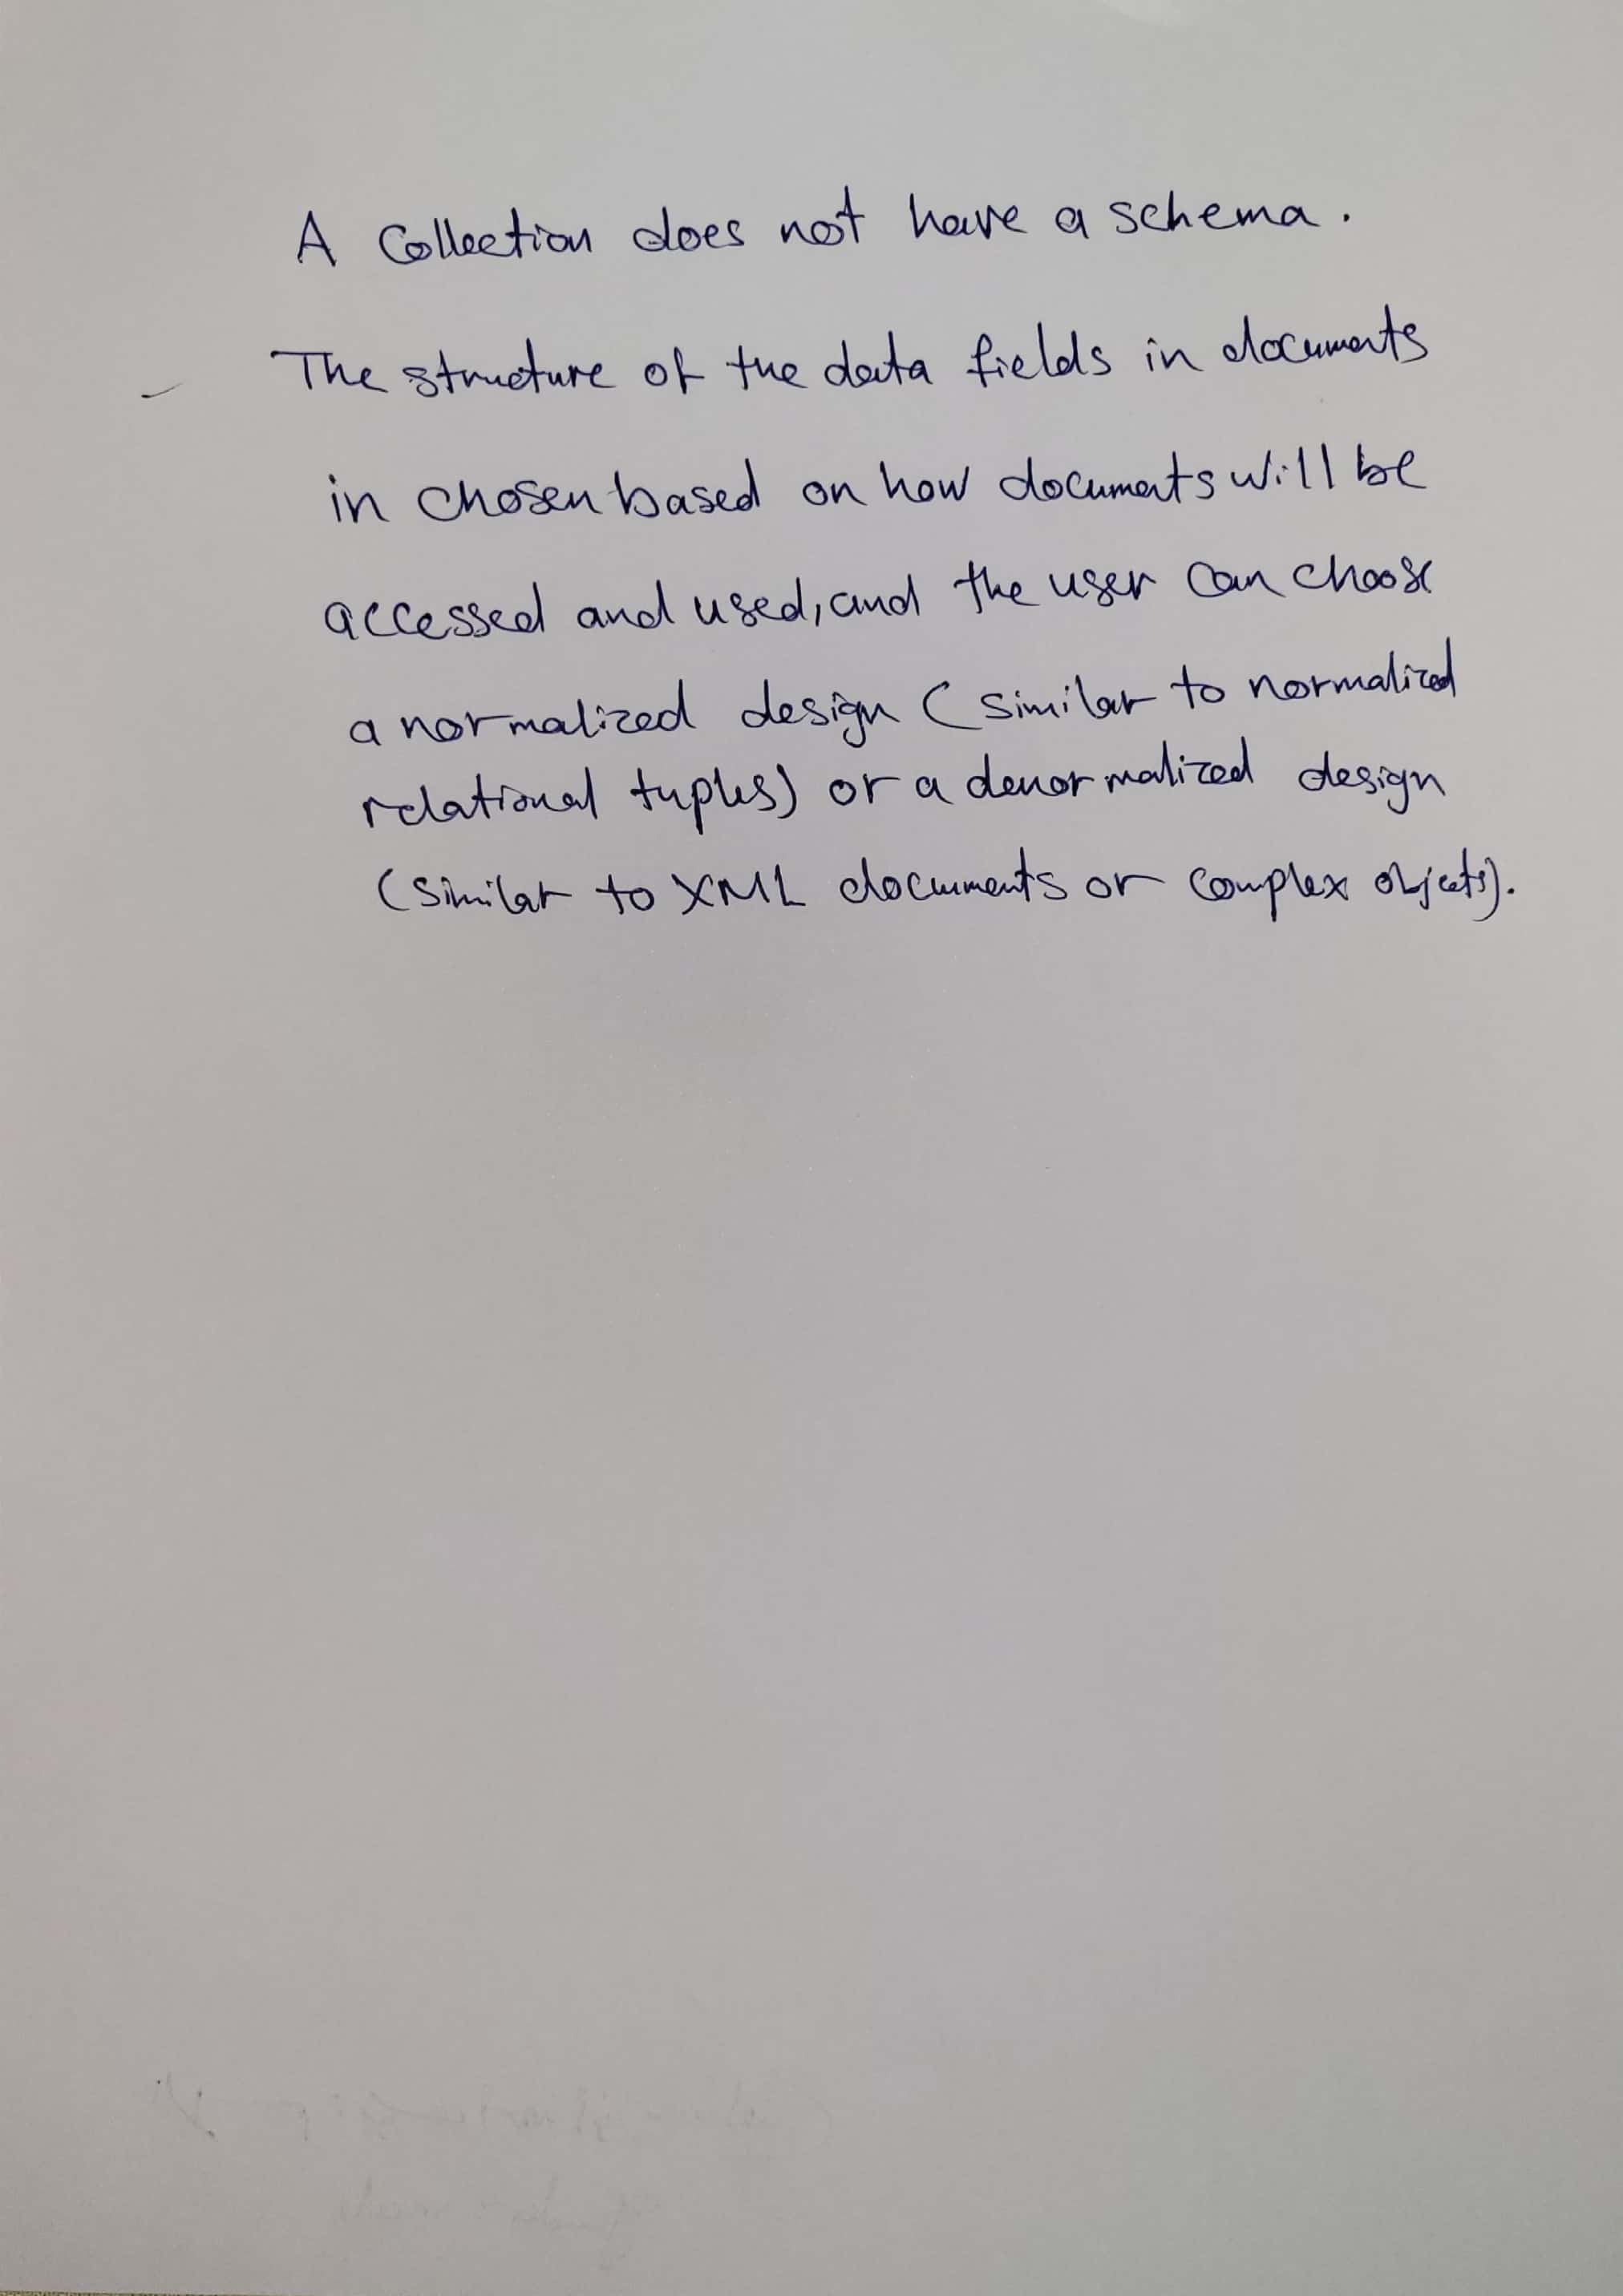 A Collection does not have a schema.
The structure of the data fields in documents
in chosen based on how documents will be
accessed and used, and the user can choose
a normalized design (similar to normalized
relational tuples) or a denormalized design
(similar to XML documents or complex objects).